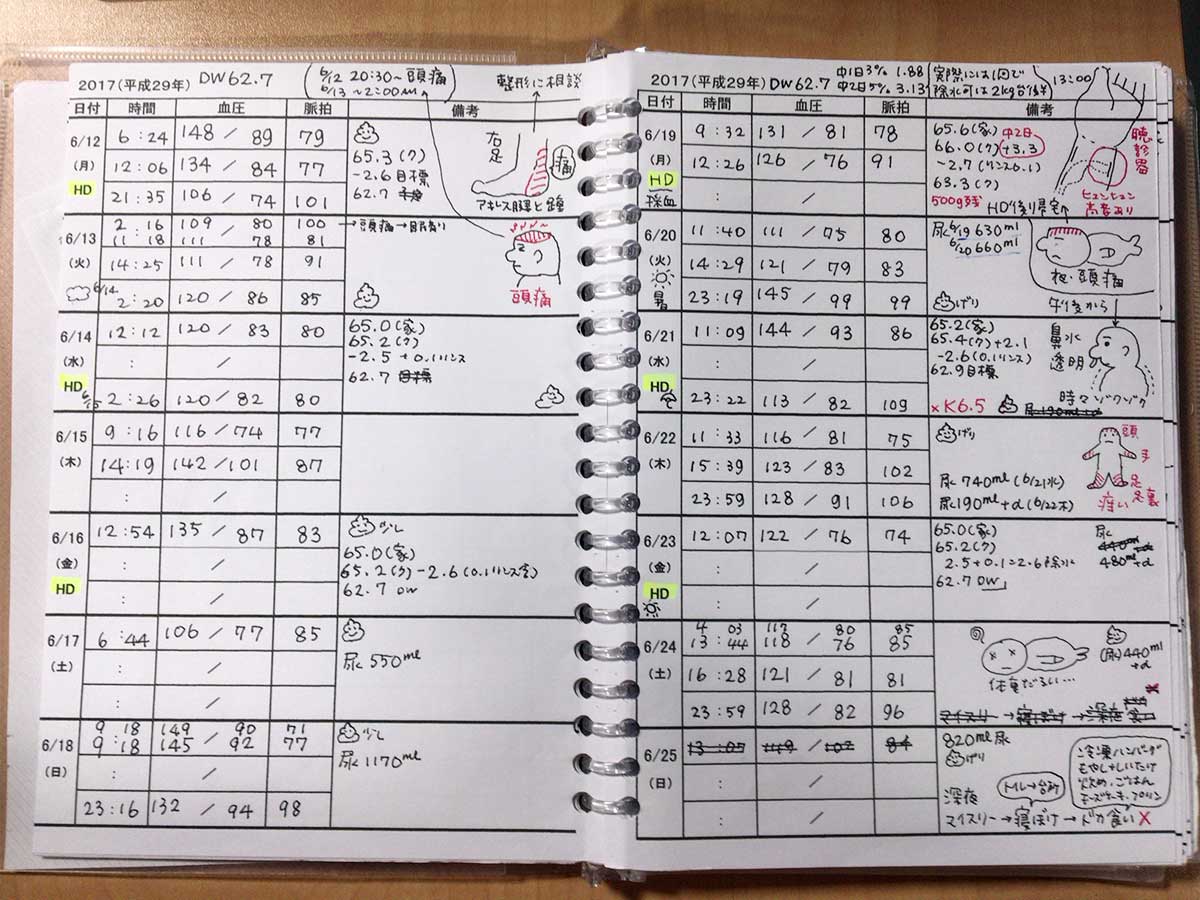 2017(平成29年) DW62.7
6/12 20:30~ 頭痛
6/13 ~2:00AM
整形に相談
日付 時間 血圧 脈拍 備考
6/12 (月) HD
6:24 148/89 79
12:06 134/84 77
21:35 106/74 101
65.3(ク)
-2.6目標
62.7
右足
痛
アキレス腱と踵
6/13 (火)
2:16 109/80 100
11:18 111/78 81
14:25 111/78 91
6/14 2:20 120/86 85
→頭痛→
頭痛
6/14 (水) HD
12:12 120/83 80
:/
6/15 2:26 120/82 80
65.0(家)
65.2(ク)
-2.5+0.1リンス
62.7 目標
6/15 (木)
9:16 116/74 77
14:19 142/101 87
:/
6/16 (金) HD
12:54 135/87 83
:/
:/
少し
65.0(家)
65.2(ク)-2.6(0.1リンス含)
62.7 DW
6/17 (土)
6:44 106/77 85
:/
:/
尿550ml
6/18 (日)
9:18 149/90 71
9:18 145/92 77
:/
23:16 132/94 98
少し
尿1170ml
2017(平成29年) DW62.7
中1日3% 1.88
中2日5% 3.13
実際には1回で
除水可は2kg台後半
13:00
日付 時間 血圧 脈拍 備考
6/19 (月) HD 採血
9:32 131/81 78
12:26 126/76 91
65.6(家)
66.0(ク) +3.3
中2日
-2.7(リンス0.1)
63.3(ク)
500g残
聴診器
ヒュンヒュン
高音あり
6/20 (火) 暑
11:40 111/75 80
14:29 121/79 83
23:19 145/99 99
尿6/19 630ml
6/20 660ml
夜・頭痛
げり
午後から
6/21 (水) HD
11:09 144/93 86
:/
23:22 113/82 109
65.2(家)
65.4(ク)+2.1
-2.6(0.1リンス)
62.9目標
×K6.5
鼻水
透明
時々ゾクゾク
尿190ml+α
6/22 (木)
11:33 116/81 75
15:39 123/83 102
23:59 128/91 106
げり
尿740ml(6/21水)
尿190ml+α(6/22木)
頭
手
足
足裏
痒い
6/23 (金) HD
12:07 122/76 74
:/
:/
65.0(家)
65.2(ク)
2.5+0.1=2.6除水
62.7DW
尿
440ml
480ml+α
6/24 (土)
4:03 117/80 85
13:44 118/76 85
16:28 121/81 81
23:59 128/82 96
(尿)440ml
+α
体重だるい…
マイスリー→寝ぼけ→深夜食い
6/25 (日)
13:05 119/102 84
:/
:/
820ml尿
げり
トイレ→台所
深夜
マイスリー→寝ぼけ→ドカ食い×
冷凍ハンバーグ
もやし+しいたけ
炒め、ごはん
チーズケーキ、プリン